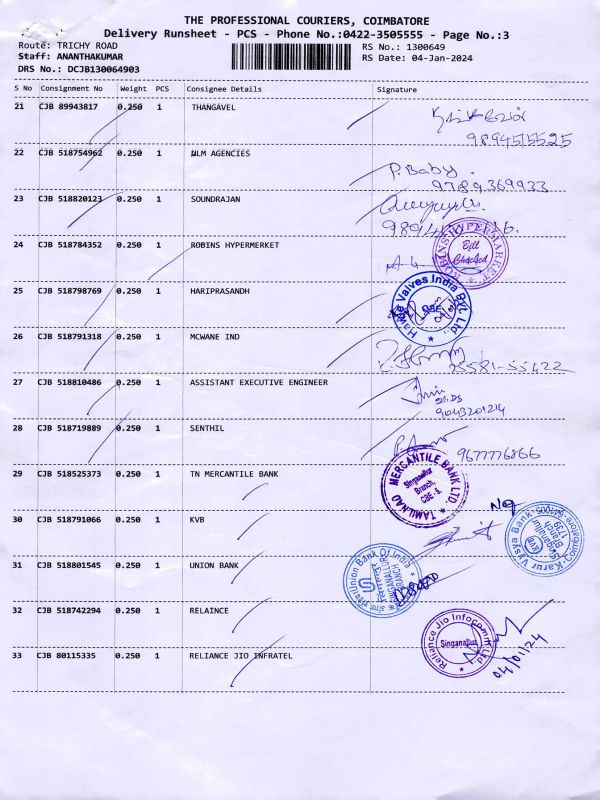 THE PROFESSIONAL COURIERS, COIMBATORE
Delivery Runsheet - PCS - Phone No.:0422-3505555 - Page No.:3
Route: TRICHY ROAD
RS No.: 1300649
Staff: ANANTHAKUMAR
RS Date: 04-Jan-2024
DRS No.: DCJB130064903
S No Consignment No Weight PCS Consignee Details Signature
21 CJB 89943817 0.250 1 THANGAVEL
9894515525
22 CJB 518754962 0.250 1 ULM AGENCIES
P. Baby
9789369933
23 CJB 518820123 0.250 1 SOUNDRAJAN
24 CJB 518784352 0.250 1 ROBINS HYPERMERKET
ROBINS HYPERMARKET
Bill
Checked
25 CJB 518798769 0.250 1 HARIPRASANDH
Valves India Pvt. Ltd.
26 CJB 518791318 0.250 1 MCWANE IND
95581-55422
27 CJB 518810486 0.250 1 ASSISTANT EXECUTIVE ENGINEER
9043201214
28 CJB 518719889 0.250 1 SENTHIL
9677776866
29 CJB 518525373 0.250 1 TN MERCANTILE BANK
TAMILNAD MERCANTILE BANK LTD.
Singanallur
Branch,
CBE - 5.
30 CJB 518791066 0.250 1 KVB
Karur Vysya Bank
Singanallur
Branch
1739
kvb
Coimbatore-641005
31 CJB 518801545 0.250 1 UNION BANK
Union Bank Of India
SINGANALLUR
BRANCH
32 CJB 518742294 0.250 1 RELAINCE
Reliance Jio Infocomm Ltd.
Singanallur
04/01/24
33 CJB 80115335 0.250 1 RELIANCE JIO INFRATEL